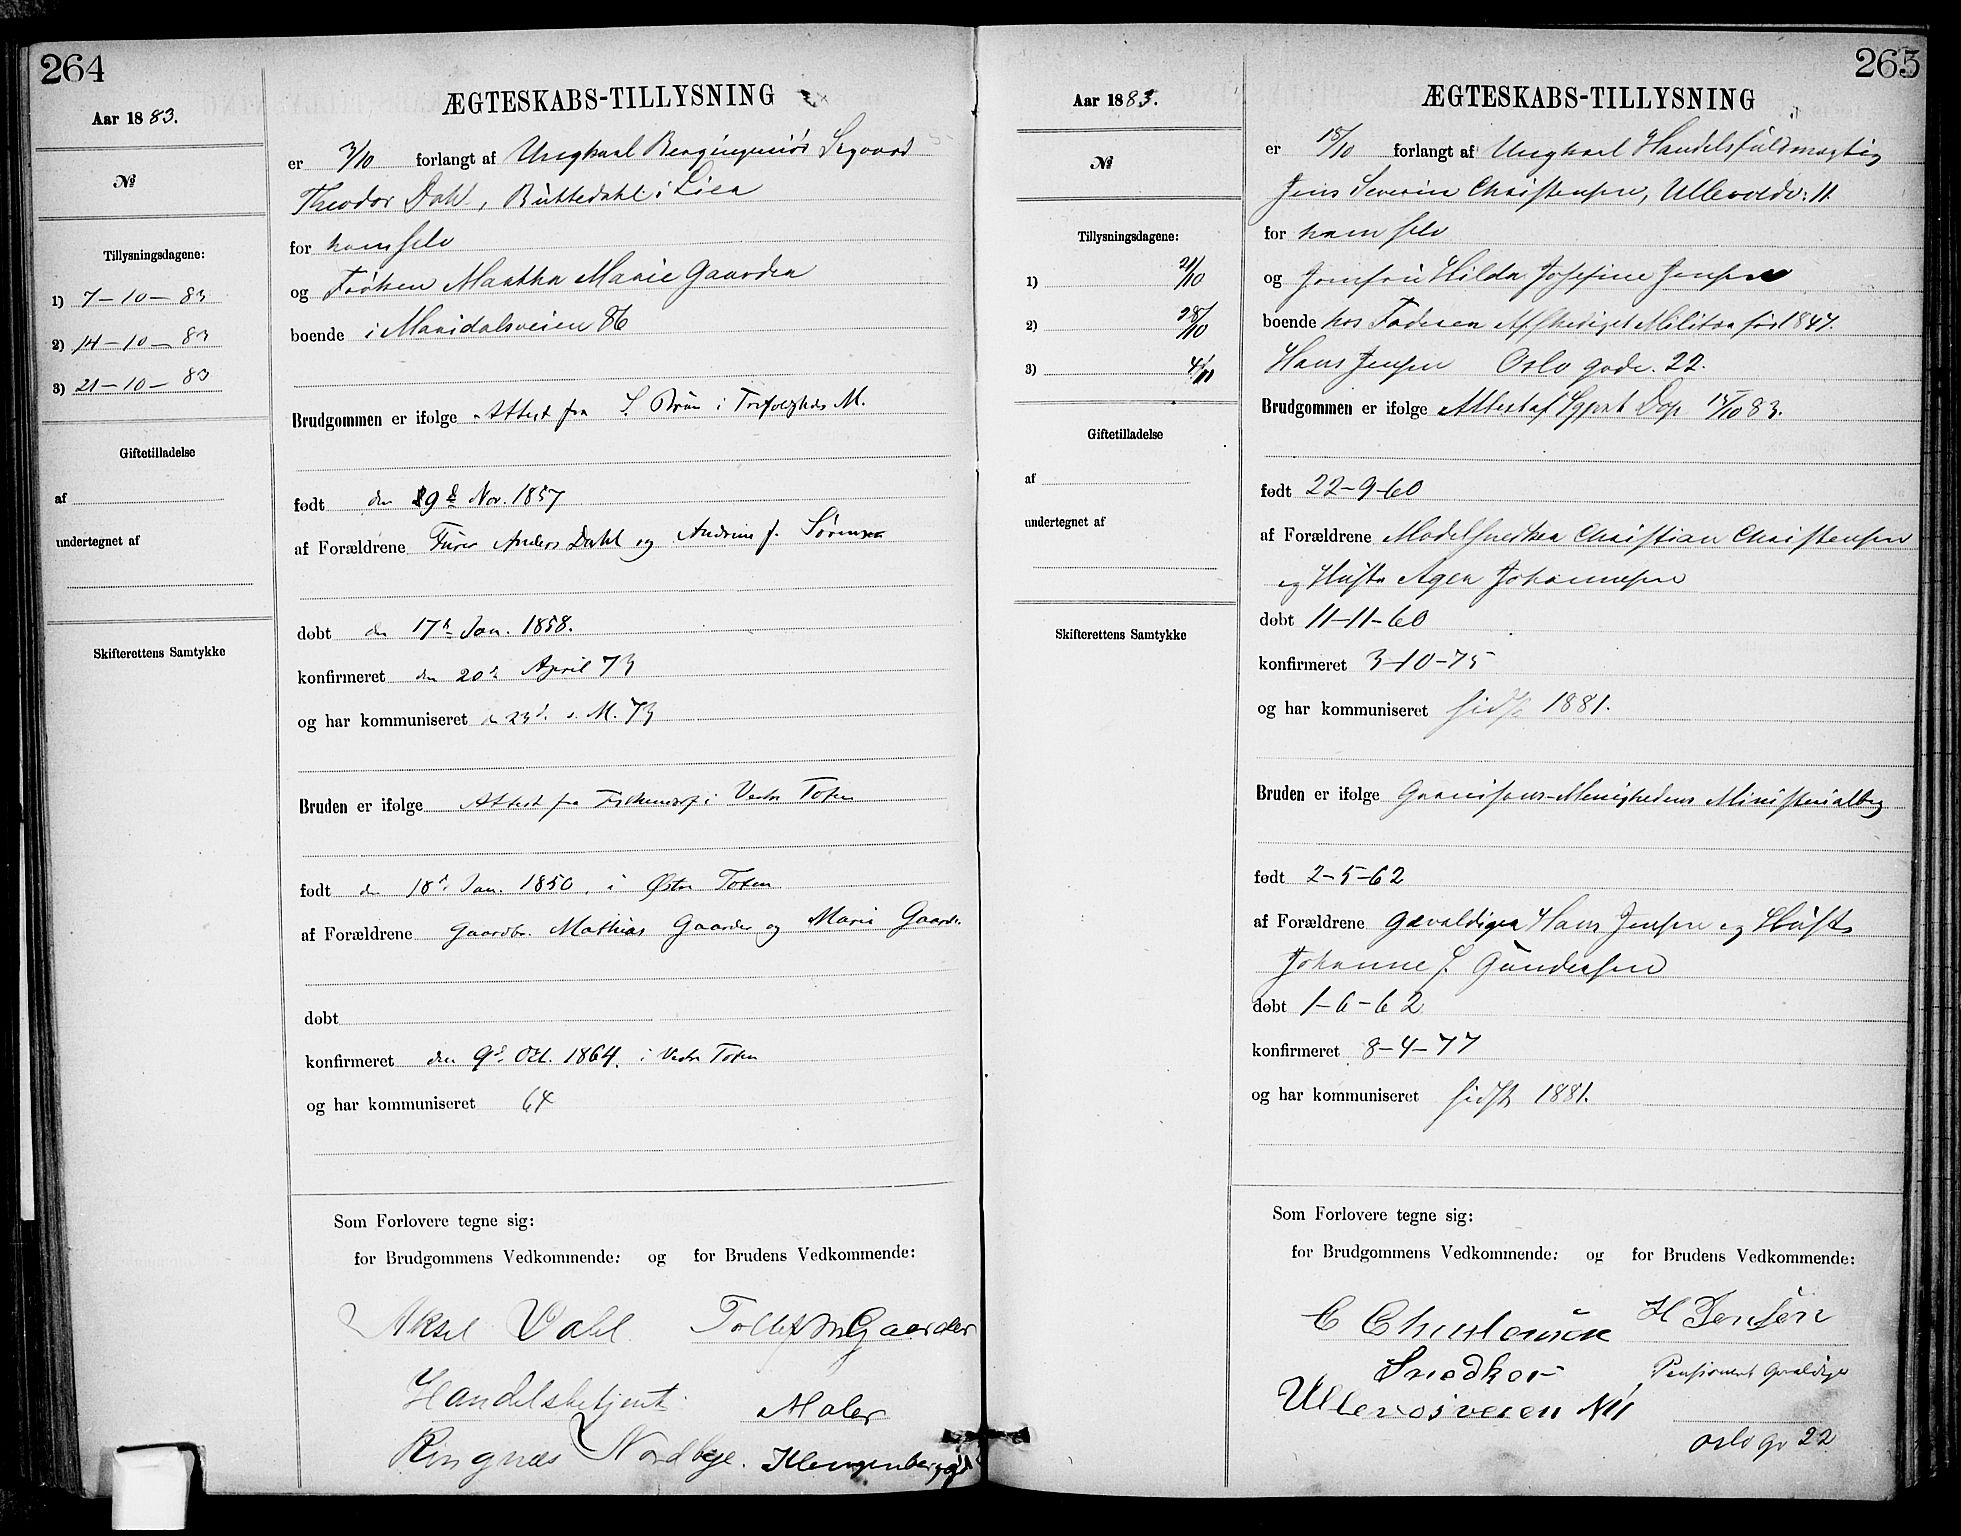 264
Aar 1883.
№
Tillysningsdagene:
1) 7-10-83
2) 14-10-83
3) 21-10-83
Giftetilladelse
af
undertegnet af
Skifterettens Samtykke
ÆGTESKABS-TILLYSNING
er 3/10 forlangt af Ungkarl Bergingeniør Sigvard
Theodor Dahl, i Lier
for ham selv
og Frøken Martha Marie Gaarder
boende i Maridalsveien 86
Brudgommen er ifølge Attest fra S. Bruun i Trefoldigheds M.
født den 29d Nov. 1857
af Forældrene Anders Dahl og Andrine f. Sørensen
døbt den 17d Jan. 1858.
konfirmeret den 20d April 73
og har kommuniseret d 23d s. M. 73
Bruden er ifølge Attest fra i Vestre Toten
født den 18d Jan. 1850, i Østre Toten
af Forældrene Gaardbr. Mathias Gaarder og Marie Gaarder
døbt
konfirmeret den 9d Oct. 1864. i Vestre Toten
og har kommuniseret 64
Som Forlovere tegne sig:
for Brudgommens Vedkommende: og for Brudens Vedkommende:
Aksel Dahl Tollef M Gaarder
Handelsbetjent. Maler
Ringnæs Nordbye. Klengenberggd
265
Aar 1883.
№
Tillysningsdagene:
1) 21/10
2) 28/10
3) 4/11
Giftetilladelse
af
undertegnet af
Skifterettens Samtykke
ÆGTESKABS-TILLYSNING
er 18/10 forlangt af Ungkarl Handelsfuldmægtig
Jens Severin Christensen, Ullevoldv: 11.
for ham selv
og Jomfru Hilda Josefine Jensen
boende hos Faderen Afskediget Militær før 1847.
Hans Jensen Oslo gade. 22.
Brudgommen er ifølge Attest af Sgprst Dop 15/10 83.
født 22-9-60
af Forældrene Modelsnedker Christian Christensen
og Hustr Agen Johannesen
døbt 11-11-60
konfirmeret 3-10-75
og har kommuniseret sidst 1881.
Bruden er ifølge Garnisons-Menighedens Ministerialbog
født 2-5-62
af Forældrene Gevaldiger Hans Jensen og Hustr
Johanne f. Gundersen
døbt 1-6-62
konfirmeret 8-4-77
og har kommuniseret sidst 1881.
Som Forlovere tegne sig:
for Brudgommens Vedkommende: og for Brudens Vedkommende:
C Christensen H Jensen
Snedker Pensioneret Gevaldiger
Ullevolsveien N 11
Oslo gd 22